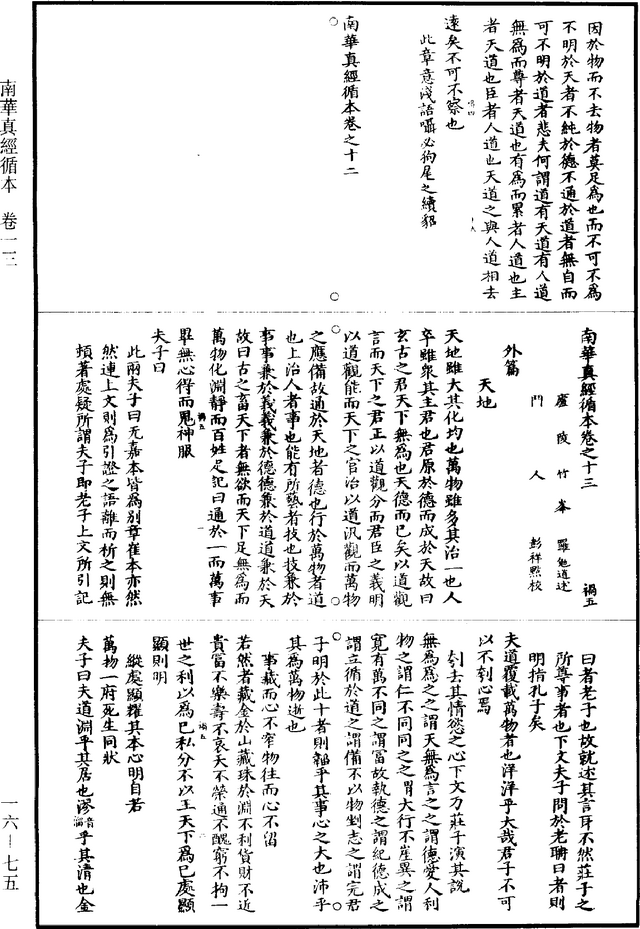 南華真經循本　卷一二三
因於物而不去物者莫足為也而不可不為
不明於天者不純於德不通於道者無自而
可不明於道者悲夫何謂道有天道有人道
無為而尊者天道也有為而累者人道也主
者天道也臣者人道也天道之與人道相去
遠矣不可不察也
此章意淺語囁必狗尾之續貂
南華真經循本卷之十二
南華真經循本卷之十三　禍五
廬陵竹峯　羅勉道述
門人　彭祥點校
外篇
天地
天地雖大其化均也萬物雖多其治一也人
卒雖衆其主君也君原於德而成於天故曰
玄古之君天下無為也天德而已矣以道觀
言而天下之君正以道觀分而君臣之義明
以道觀能而天下之官治以道汎觀而萬物
之應備故通於天地者德也行於萬物者道
也上治人者事也能有所藝者技也技兼於
事事兼於義義兼於德德兼於道道兼於天
故曰古之畜天下者無欲而天下足無為而
萬物化淵靜而百姓足記曰通於一而萬事
畢無心得而鬼神服
夫子曰
此兩夫子曰无嘉本皆為別章崔本亦然
然連上文則為引證之語離而析之則無
頊著處疑所謂夫子即老子上文所引記
曰者老子也故就述其言耳不然莊子之
所尊事者也下文夫子問於老聃曰者則
明指孔子矣
夫道覆載萬物者也洋洋乎大哉君子不可
以不刳心焉
刳去其情慾之心下文乃莊子演其說
無為為之之謂天無為言之之謂德愛人利
物之謂仁不同同之之謂大行不崖異之謂
寬有萬不同之謂富故執德之謂紀德成之
謂立循於道之謂備不以物剉志之謂完君
子明於此十者則韜乎其事心之大也沛乎
其為萬物逝也
事藏而心不窄物往而心不留
若然者藏金於山藏珠於淵不利貨財不近
貴富不樂壽不哀夭不榮通不醜窮不拘一
世之利以為已私分不以王天下為已處顯
顯則明
縱處顯耀其本心明自若
萬物一府死生同狀
夫子曰夫道淵乎其居也漻乎其清也金
一六－七五